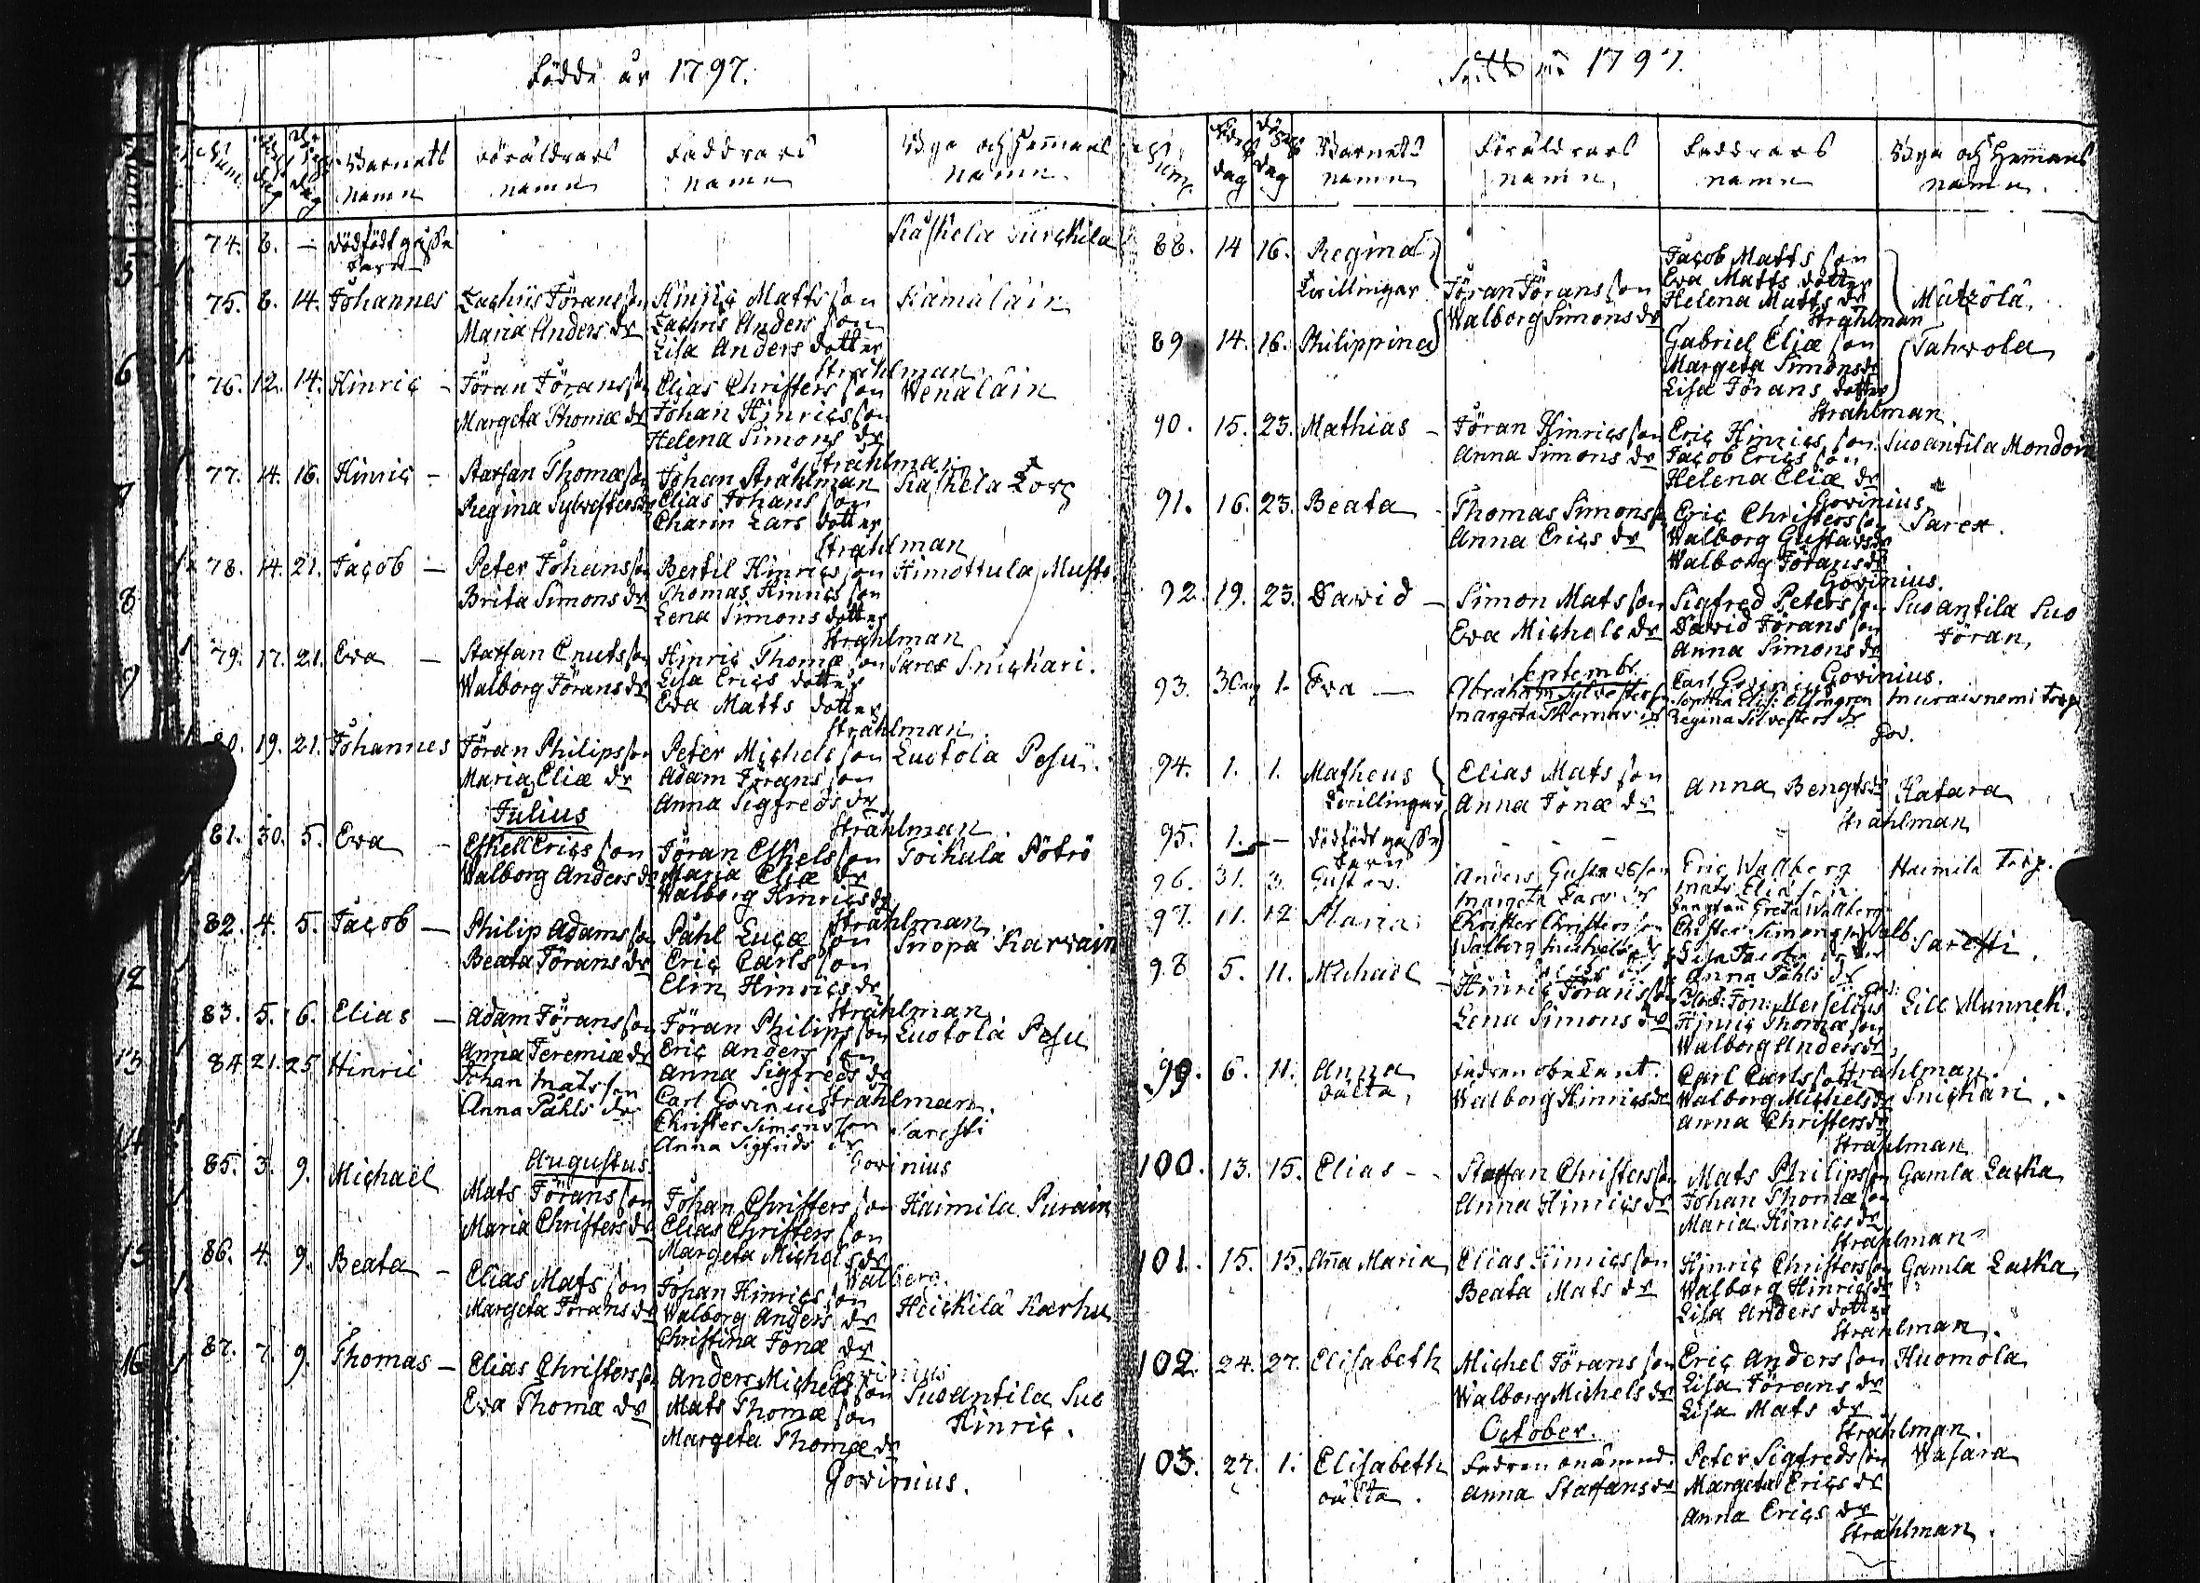 Födde år 1797.
Num.
dag
dag
Barnets namn
Föräldrars namn
Faddrars namn
Bya och Hemans namn.
74. 8. — dödfödt gåsse barn
Kaskela
75. 8. 14. Johannes
Zachris Föransson
Maria Anders dr
Hinric Matts son
Zachris Anders son
Lisa Anders dotter
Strahlman
Kämäläin
76. 12. 14. Hinric —
Föran Föransson
Margeta Thomæ dr
Elias Christers son
Johan Hinricsson
Helena Simons dr
Strahlman
Wenäläin
77. 14. 16. Hinric —
Staffan Thomæson
Regina Sylvesters dr
Johan Strahlman
Elias Johans son
Charin Lars dotter
Strahlman
Kaskela
78. 14. 21. Jacob —
Peter Johansson
Brita Simons dr
Bertil Hinrics son
Thomas Hinrics son
Lena Simons dotter
Strahlman
Himottula Musto
79. 17. 21. Eva —
Staffan Cnutsson
Walborg Förans dr
Hinric Thomæ son
Lisa Erics dotter
Eva Matts dotter
Strahlman.
Sarex Snickari.
80. 19. 21. Johannes
Föran Philipsson
Maria Eliæ dr
Peter Michels son
Adam Förans son
Anna Sigfreds dr
Strahlman.
Luotola Pesu.
Julius
81. 30. 5. Eva —
Eskell Erics son
Walborg Anders dr
Föran Eskels son
Maria Eliæ dr
Walborg Hinrics dr
Strahlman.
Toikala Pötrö
82. 4. 5. Jacob —
Philip Adamsson
Beata Förans dr
Påhl Lucæ son
Eric Carls son
Elin Hinrics dr
Strahlman
Knopa Karvain
83. 5. 6. Elias —
Adam Föransson
Anna Jeremiæ dr
Föran Philips son
Eric Anders son
Anna Sigfreds dr
Strahlman.
Luotola Pesu
84. 21. 25. Hinric
Johan Mats son
Anna Påhls dr
Carl Govinius
Christer Simons son
Anna Sigfrids dr
Govinius
Saresti
Augustus
85. 3. 9. Michael
Mats Förans son
Maria Christers dr
Johan Christers son
Elias Christers son
Margeta Michels dr
Walberg.
Haimila Purain
86. 4. 9. Beata —
Elias Mats son
Margeta Förans dr
Johan Hinrics son
Walborg Anders dr
Christina Jonæ dr
Govinius
Heickilä Karhu
87. 7. 9. Thomas —
Elias Christersson
Eva Thomæ dr
Anders Michels son
Mats Thomæ son
Margeta Thomæ dr
Govinius.
Suoantila Suo Hinric.
1797.
Num.
dag
dag
Barnets namn
Föräldrars namn
Faddrars namn
Bya och Hemans namn.
88. 14 16. Regina
Twillingar
Föran Förans son
Walborg Simons dr
Jacob Matts son
Eva Matts dotter
Helena Matts dr
Strahlman
Mätzölä.
89. 14. 16. Philippina
Gabriel Eliæ son
Margeta Simons dr
Lisa Förans dotter
Strahlman.
Tahvola
90. 15. 23. Mathias —
Föran Hinricsson
Anna Simons dr
Eric Hinrics son
Jacob Erics son
Helena Eliæ dr
Govinius
Suoantila Mondon
91. 16. 23. Beata
Thomas Simonsson
Anna Erics dr
Eric Christersson
Walborg Gustavs dr
Walborg Förans dr
Govinius.
Sarex.
92. 19. 23. David —
Simon Mats son
Eva Michels dr
Sigfred Peters son
David Förans son
Anna Simons dr
Govinius.
Suoantila Suo Föran.
Septembr.
93. 30 1. Eva —
Abraham Sylvesters son
Margeta Thomas dr
Carl Govinius
Regina Silvesters dr
Gov.
94. 1. 1. Matheus
Twillingar
Elias Mats son
Anna Jonæ dr
Anna Bengts dr
Strahlman
Katara
95. 1. — dödfödt gåsse barn
96. 31. 3. Gustav.
Anders Gustavsson
Eric Wallberg
Mats Elia son
Greta Wallberg
Haimila Torp.
97. 11. 12 Maria
Christer Christersson
Walborg Michels dr
Christer Simonsson
Saresti.
98 5. 11. Michael —
Hinric Föransson
Lena Simons dr
Hinric Thomæ son
Walborg Anders dr
Lill Munnek.
99. 6. 11. Anna oäcta.
Fadren obekant.
Walborg Hinrics dr
Carl Carlsson
Walborg Michels dr
Anna Christers dr
Strahlman
Snickari.
100. 13. 15. Elias —
Staffan Christersson
Anna Hinrics dr
Mats Philipsson
Johan Thomæ son
Maria Hinrics dr
Strahlman
Gamla Lacka
101. 15. 15. Aña Maria
Elias Hinricsson
Beata Mats dr
Hinric Christersson
Walborg Hinrics dr
Lisa Anders dotter
Strahlman.
Gamla Lacka
102. 24. 27. Elisabeth
Michel Förans son
Walborg Michels dr
Eric Anders son
Lisa Förans dr
Lisa Mats dr
Strahlman.
Huomola
October.
103. 27. 1. Elisabeth oäcta.
Fadren onämnd.
Anna Staffans dr
Peter Sigfredsson
Margeta Erics dr
Anna Erics dr
Strahlman.
Wasara